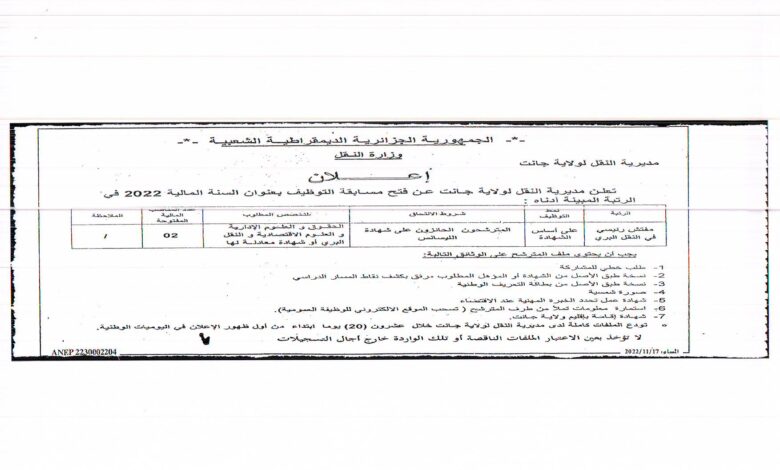 -*- الجمهورية الجزائرية الديمقراطية الشعبية -*-
وزارة النقل
مديرية النقل لولاية جانت
إعـــلان
تعلن مديرية النقل لولاية جانت عن فتح مسابقة التوظيف بعنوان السنة المالية 2022 في
الرتبة المبينة أدناه :
الرتبة نمط التوظيف شروط الالتحاق التخصص المطلوب عدد المناصب المالية المفتوحة الملاحظة
مفتش رئيسي في النقل البري على أساس الشهادة المترشحون الحائزون على شهادة الليسانس الحقوق و العلوم الإدارية و العلوم الاقتصادية و النقل البري أو شهادة معادلة لها 02 /
يجب ان يحتوي ملف المترشح على الوثائق التالية:
1- طلب خطي للمشاركة
2- نسخة طبق الأصل من الشهادة أو المؤهل المطلوب مرفق بكشف نقاط المسار الدراسي
3- نسخة طبق الأصل من بطاقة التعريف الوطنية
4- صورة شمسية
5- شهادة عمل تحدد الخبرة المهنية عند الاقتضاء
6- استمارة معلومات تملأ من طرف المترشح ( تسحب الموقع الالكتروني للوظيفة العمومية).
7- شهادة إقامة بإقليم ولاية جانت.
o تودع الملفات كاملة لدى مديرية النقل لولاية جانت خلال عشرون (20) يوما ابتداء من أول ظهور الإعلان في اليوميات الوطنية.
لا تؤخذ بعين الاعتبار الملفات الناقصة أو تلك الواردة خارج آجال التسجيلات
المساء: 2022/11/17
ANEP 2230002204